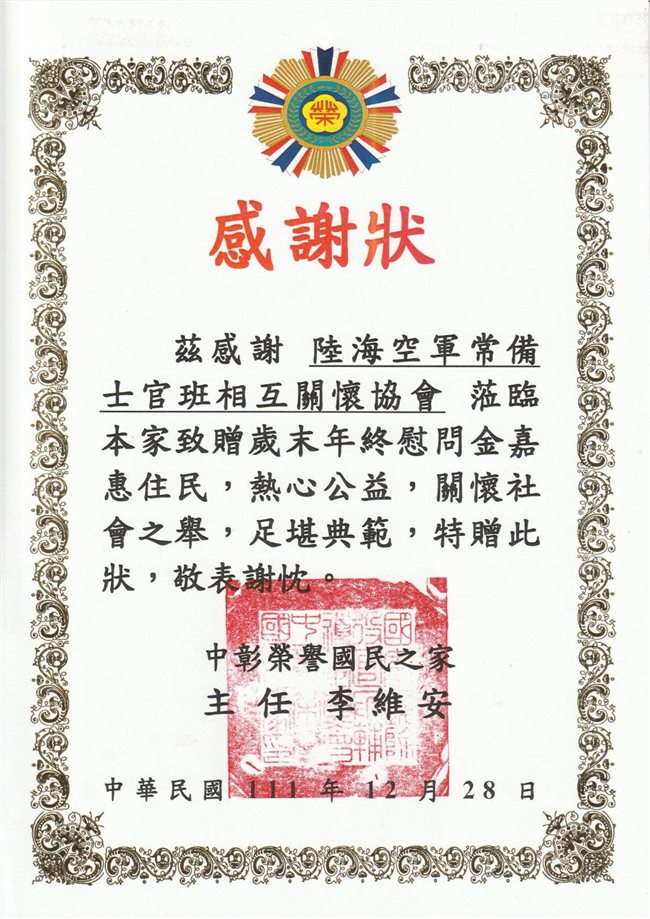 榮
感謝狀
茲感謝 陸海空軍常備
士官班相互關懷協會 蒞臨
本家致贈歲末年終慰問金嘉
惠住民，熱心公益，關懷社
會之舉，足堪典範，特贈此
狀，敬表謝忱。
中彰榮譽國民之家
主任 李維安
中華民國 111 年 12 月 28 日